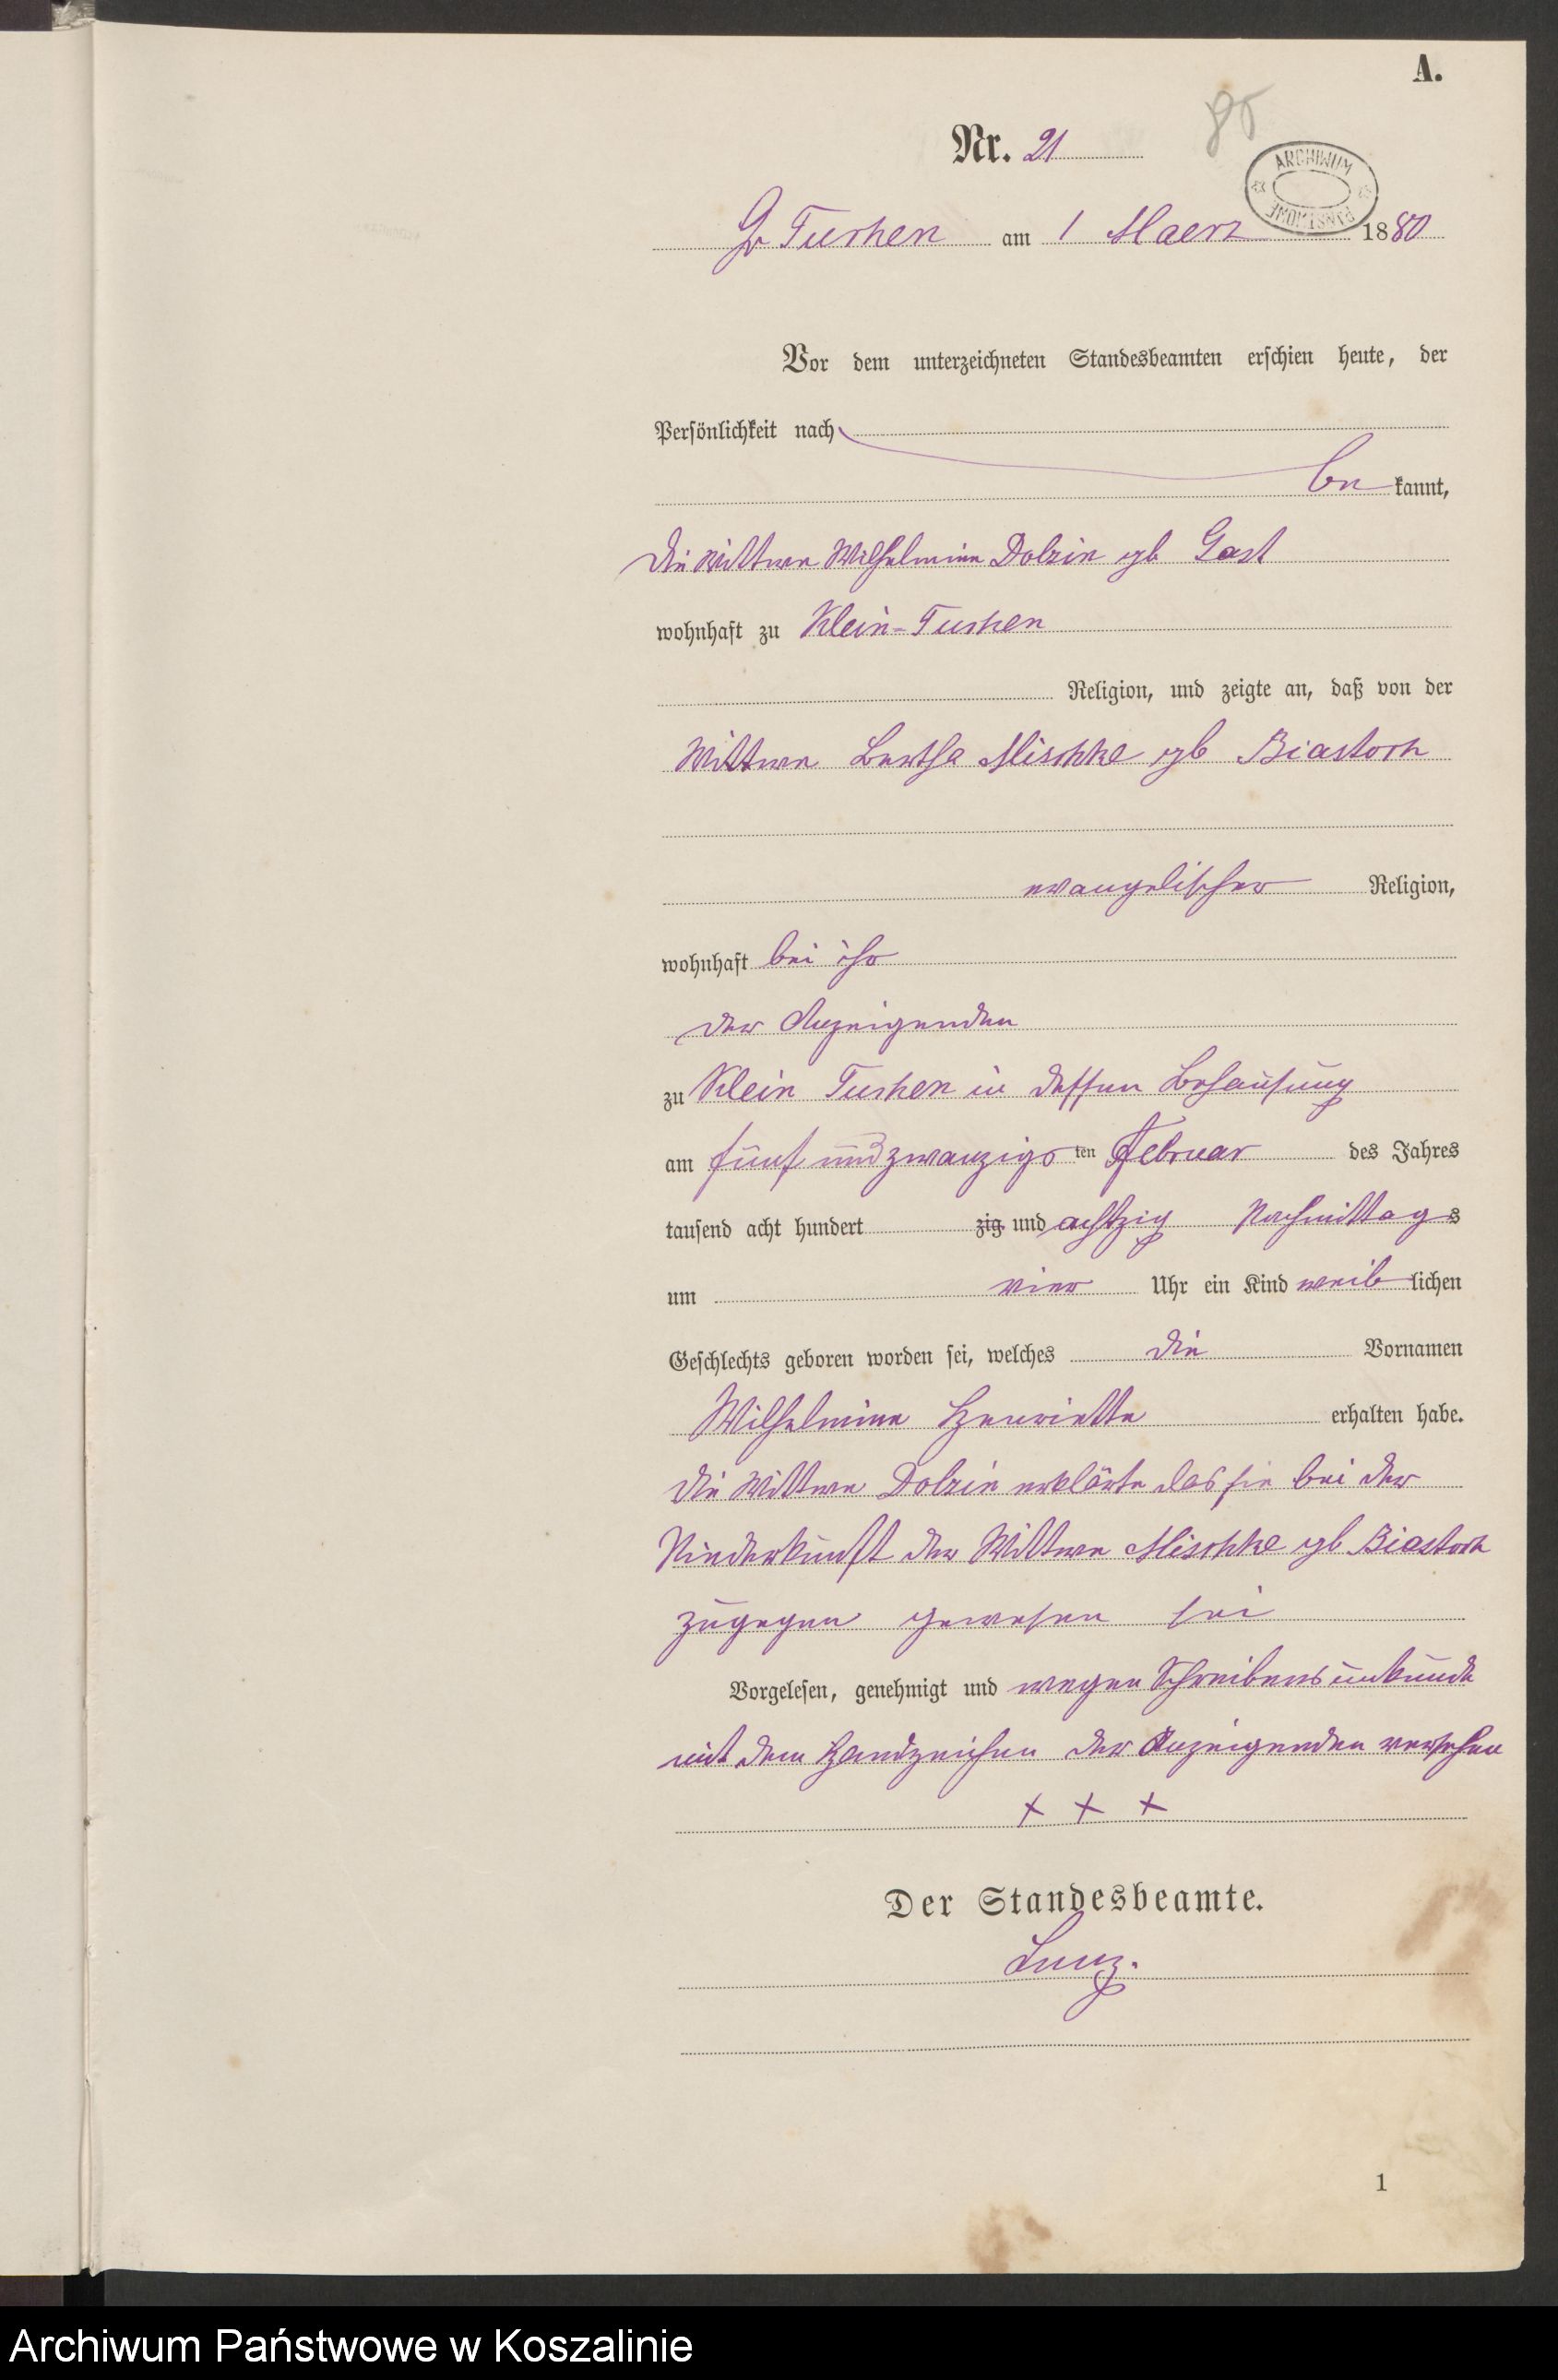 A.
85
Nr. 21
ARCHIWUM PAŃSTWOWE
Gr Tuchen am 1 Maerz 1880
Vor dem unterzeichneten Standesbeamten erschien heute, der
Persönlichkeit nach
be kannt,
die Wittwe Wilhelmine Dolzin gb Gast
wohnhaft zu Klein-Tuchen
Religion, und zeigte an, daß von der
Wittwe Bertha Mischke gb Biastoch
evangelischer Religion,
wohnhaft bei ihr
der Anzeigenden
zu Klein Tuchen in dessen Behausung
am fünf und zwanzigsten Februar des Jahres
tausend acht hundert zig und achtzig Nachmittags
um vier Uhr ein Kind weiblichen
Geschlechts geboren worden sei, welches die Vornamen
Wilhelmine Henriette erhalten habe.
die Wittwe Dolzin erklärte das sie bei der
Niederkunft der Wittwe Mischke gb Biastoch
zugegen gewesen sei
Vorgelesen, genehmigt und wegen Schreibensunkunde
mit dem Handzeichen der Anzeigenden versehen
+ + +
Der Standesbeamte.
1
Archiwum Państwowe w Koszalinie